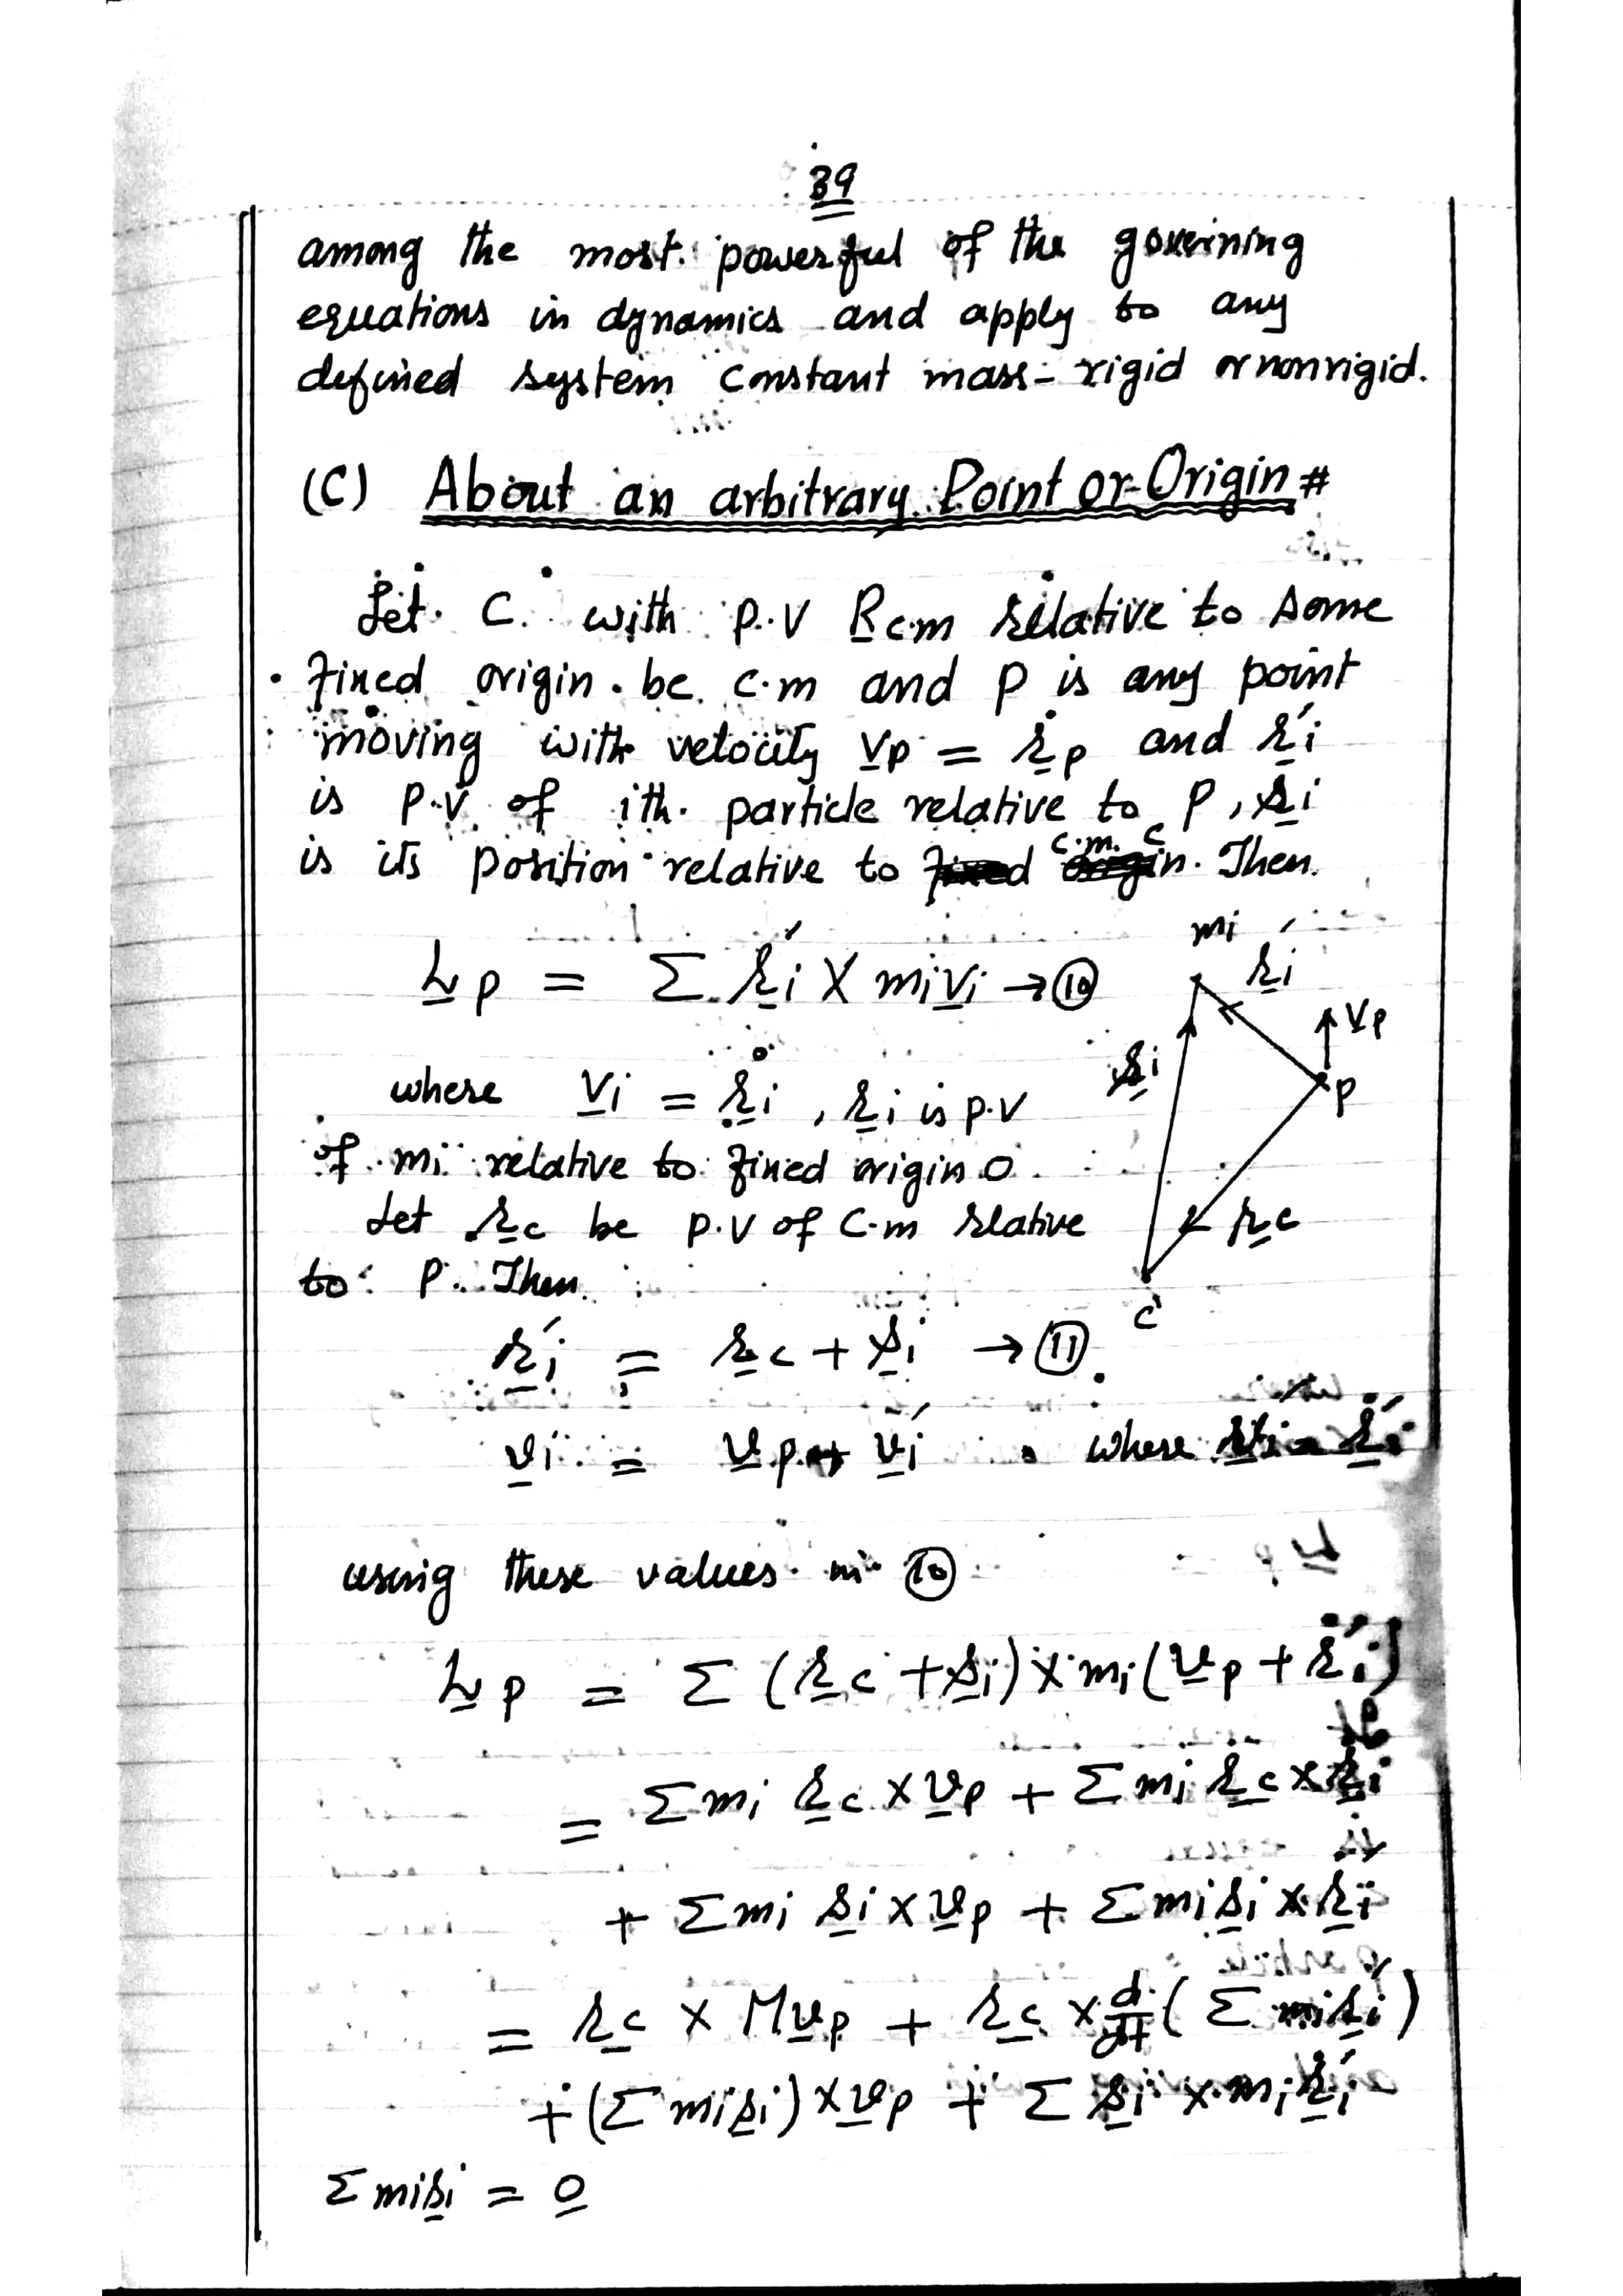 39
among the most powerful of the governing
equations in dynamics and apply to any
defined system constant mass - rigid or nonrigid.
(C) About an arbitrary Point or Origin #
Let C. with p.v R̲c.m relative to some
fixed origin be c.m and P is any point
moving with velocity v̲p = ṙ̲p and r̲'i
is p.v of ith particle relative to P, s̲i
is its position relative to c.m. C Then.
L̲p = Σ r̲'i × mi v̲i → ⑩
mi
r̲'i
v̲p
P
s̲i
r̲c
C
where v̲i = ṙ̲i , r̲i is p.v
of mi relative to fixed origin O
Let r̲c be p.v of C.m rlative
to P. Then
r̲'i = r̲c + s̲i → ⑪
v̲i = v̲p + v̲'i where
using these values in ⑩
L̲p = Σ (r̲c + s̲i) × mi (v̲p + ṙ̲'i)
= Σ mi r̲c × v̲p + Σ mi r̲c × ṙ̲'i
+ Σ mi s̲i × v̲p + Σ mi s̲i × ṙ̲'i
= r̲c × M v̲p + r̲c × d/dt ( Σ mi r̲'i )
+ (Σ mi s̲i) × v̲p + Σ s̲i × mi ṙ̲'i
Σ mi s̲i = 0̲